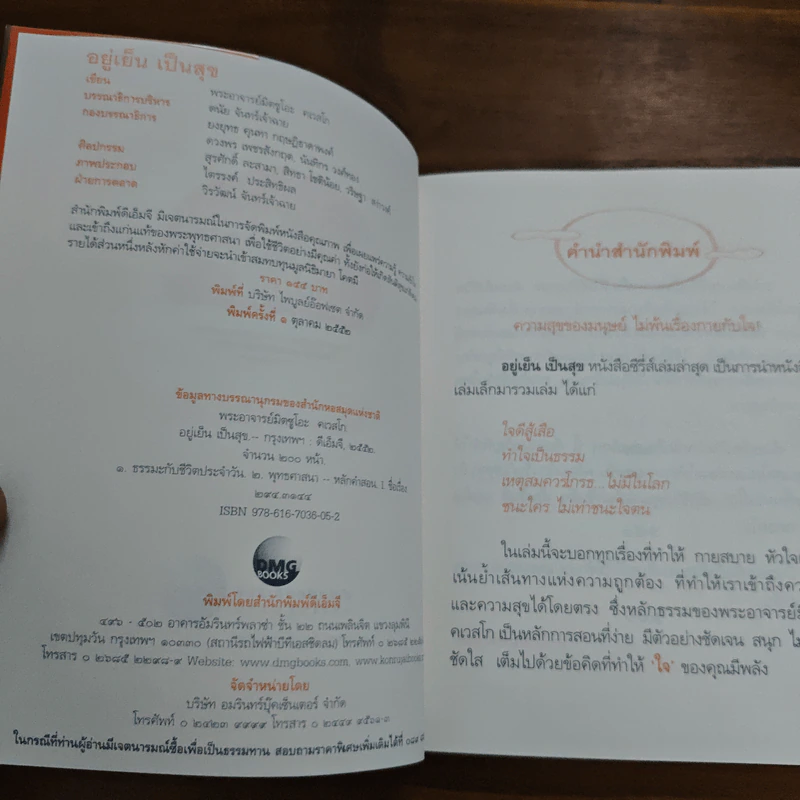 อยู่เย็น เป็นสุข
เขียน พระอาจารย์มิตซูโอะ คเวสโก
บรรณาธิการบริหาร ดนัย จันทร์เจ้าฉาย
กองบรรณาธิการ ยงยุทธ
ศิลปกรรม สุรศักดิ์ ละสามา,
ภาพประกอบ ไตรรงค์ ประสิทธิผล
ฝ่ายการตลาด วิรวัฒน์ จันทร์เจ้าฉาย
สำนักพิมพ์ดีเอ็มจี มีเจตนารมณ์ในการจัดพิมพ์หนังสือคุณภาพ เพื่อเผยแพร่ความรู้
และเข้าถึงแก่นแท้ของพระพุทธศาสนา เพื่อใช้ชีวิตอย่างมีคุณค่า
รายได้ส่วนหนึ่งหลังหักค่าใช้จ่ายจะนำเข้าสมทบทุนมูลนิธิมายา โคตมี
ราคา ๑๔๕ บาท
พิมพ์ที่ บริษัท ไพบูลย์อ๊อฟเซต จำกัด
พิมพ์ครั้งที่ ๑ ตุลาคม ๒๕๕๒
ข้อมูลทางบรรณานุกรมของสำนักหอสมุดแห่งชาติ
พระอาจารย์มิตซูโอะ คเวสโก.
อยู่เย็น เป็นสุข.-- กรุงเทพฯ : ดีเอ็มจี, ๒๕๕๒.
จำนวน ๒๐๐ หน้า.
๑. ธรรมะกับชีวิตประจำวัน. ๒. พุทธศาสนา -- หลักคำสอน. I. ชื่อเรื่อง.
๒๙๔.๓๑๔๔
ISBN 978-616-7036-05-2
DMG
BOOKS
พิมพ์โดยสำนักพิมพ์ดีเอ็มจี
๔๙๖ - ๕๐๒ อาคารอัมรินทร์พลาซ่า ชั้น ๒๒ ถนนเพลินจิต แขวงลุมพินี
เขตปทุมวัน กรุงเทพฯ ๑๐๓๓๐ (สถานีรถไฟฟ้าบีทีเอสชิดลม) โทรศัพท์ ๐ ๒๖๘๕
โทรสาร ๐ ๒๖๘๕ ๒๒๙๘-๙ Website: www.dmgbooks.com,
จัดจำหน่ายโดย
บริษัท อมรินทร์บุ๊คเซ็นเตอร์ จำกัด
โทรศัพท์ ๐ ๒๔๒๓ ๙๙๙๙ โทรสาร ๐ ๒๔๔๙
ในกรณีที่ท่านผู้อ่านมีเจตนารมณ์ซื้อเพื่อเป็นธรรมทาน สอบถามราคาพิเศษเพิ่มเติมได้ที่
คำนำสำนักพิมพ์
ความสุขของมนุษย์ ไม่พ้นเรื่องกายกับใจ!
อยู่เย็น เป็นสุข หนังสือซีรี่ส์เล่มล่าสุด เป็นการนำหนัง
เล่มเล็กมารวมเล่ม ได้แก่
ใจดีสู้เสือ
ทำใจเป็นธรรม
เหตุสมควรโกรธ...ไม่มีในโลก
ชนะใคร ไม่เท่าชนะใจตน
ในเล่มนี้จะบอกทุกเรื่องที่ทำให้ กายสบาย หัวใจ
เน้นย้ำเส้นทางแห่งความถูกต้อง ที่ทำให้เราเข้าถึง
และความสุขได้โดยตรง ซึ่งหลักธรรมของพระอาจารย์
คเวสโก เป็นหลักการสอนที่ง่าย มีตัวอย่างชัดเจน สนุก
ชัดใส เต็มไปด้วยข้อคิดที่ทำให้ 'ใจ' ของคุณมีพลัง